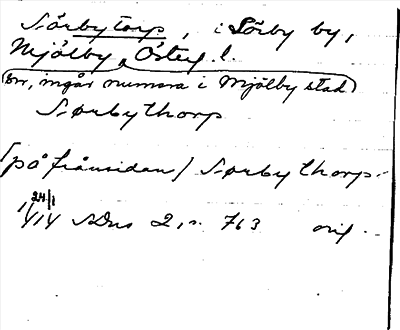 Sörbytorp, i Sörby by,
Mjölby, Österg. l.
(srr, ingår numera i Mjölby stad)
Sørbythorp
[på frånsidan] Sørbythorp
24/1
1414 SDns 2, n. 763 orig.